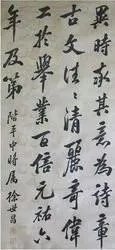 異時求其意為詩章
古文往往清麗奇偉
工於舉業百倍元祐六
年及第
階平中時属徐世昌